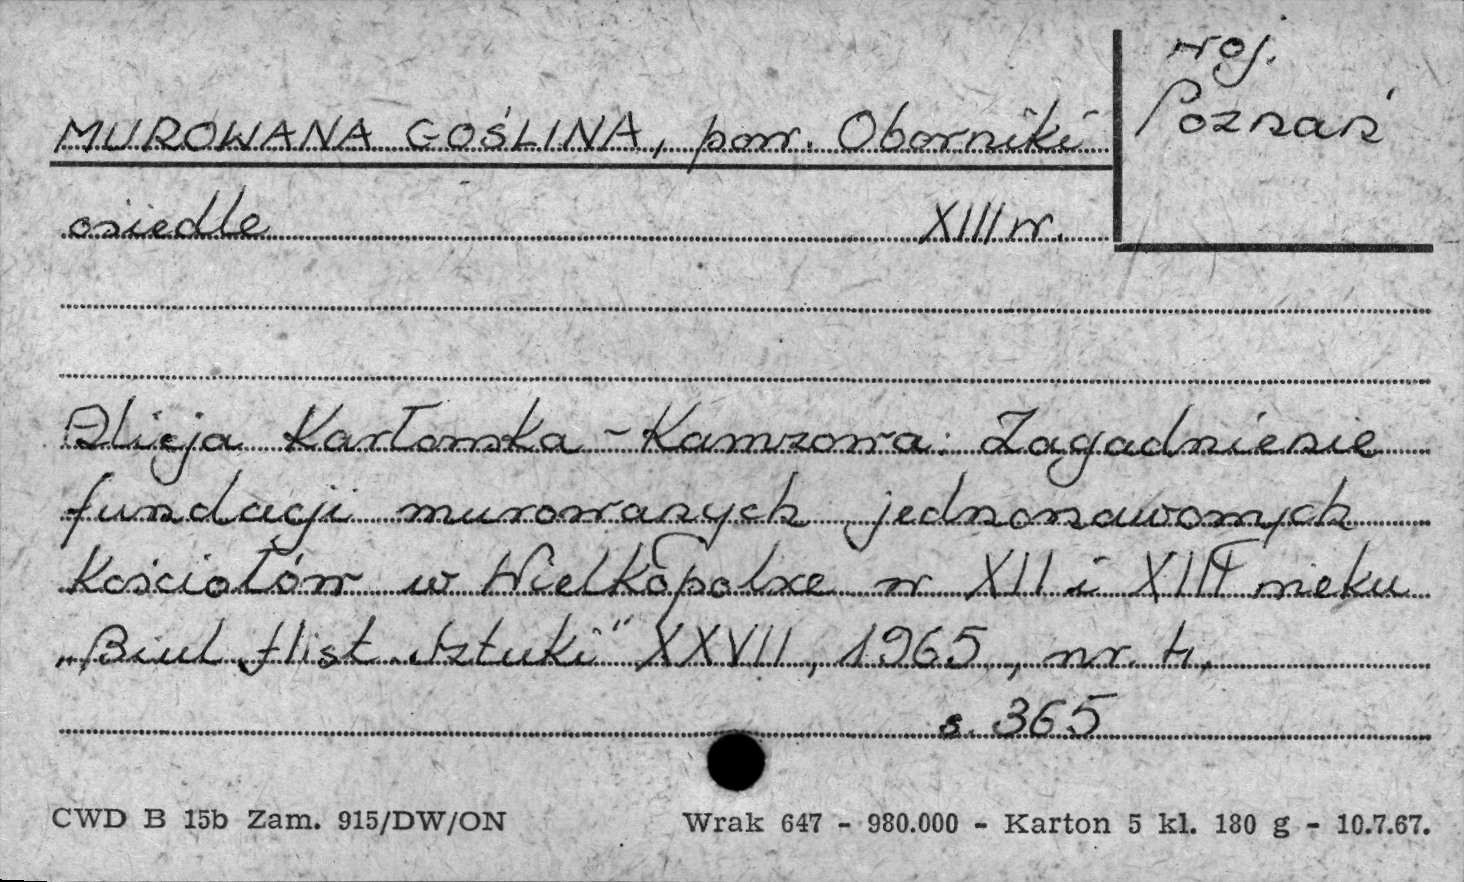 woj.
Poznań
MUROWANA GOŚLINA, pow. Oborniki
osiedle XIII w.
Alicja Karłowska-Kamzowa: Zagadnienie
fundacji murowanych jednonawowych
kościołów w Wielkopolsce w XII i XIII wieku
„Biul. Hist. Sztuki" XXVII, 1965, nr. 4,
s. 365
CWD B 15b Zam. 915/DW/ON Wrak 647 - 980.000 - Karton 5 kl. 180 g - 10.7.67.